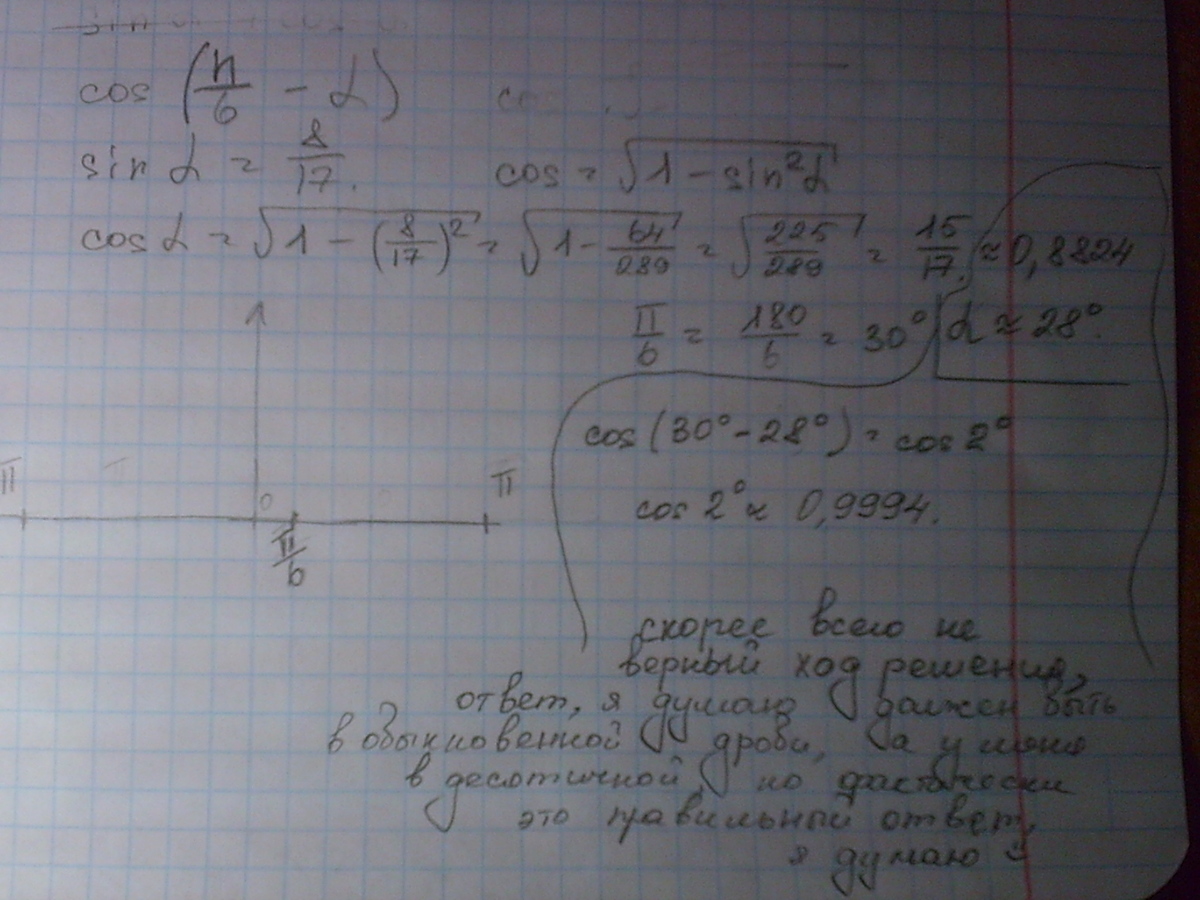 cos (π/6 - α)
sin α = 8/17. cos = √(1 - sin²α)
cos α = √(1 - (8/17)²) = √(1 - 64/289) = √(225/289) = 15/17. ≈ 0,8824
π/6 = 180/6 = 30° α ≈ 28°.
cos(30° - 28°) = cos 2°
cos 2° ≈ 0,9994.
π 0 π
π/6
скорее всего не
верный ход решения,
ответ, я думаю должен быть
в обыкновенной дроби, а у меня
в десятичной, но фактически
это правильный ответ,
я думаю :)